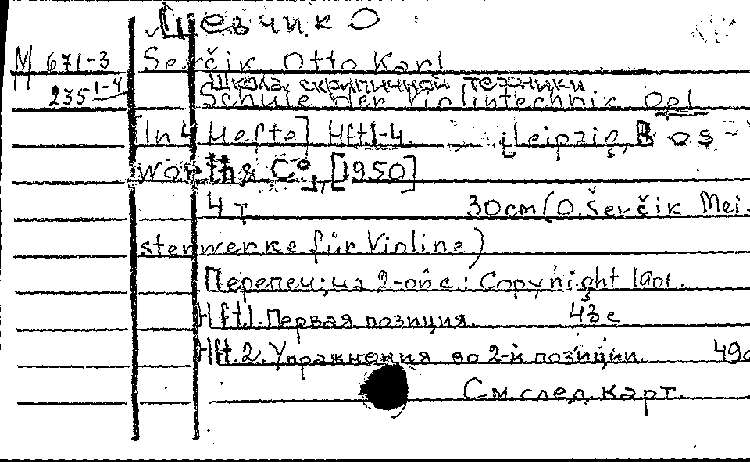 Шевчик О
М 671-3 Ševčik Otto Karl
Школа скрипичной техники
235 1-4 Schule der Violintechnik Op1
[In 4 Hefte] Hft1-4. Leipzig, Bos-
worth & C°, [1950]
4 т. 30см (O. Ševčik Mei-
sterwerke für Violine)
Перепеч; на 2-обл: Copyright 1901.
Hft.1. Первая позиция. 43с
Hft.2. Упражнения во 2-й позиции. 49с
См. след. карт.